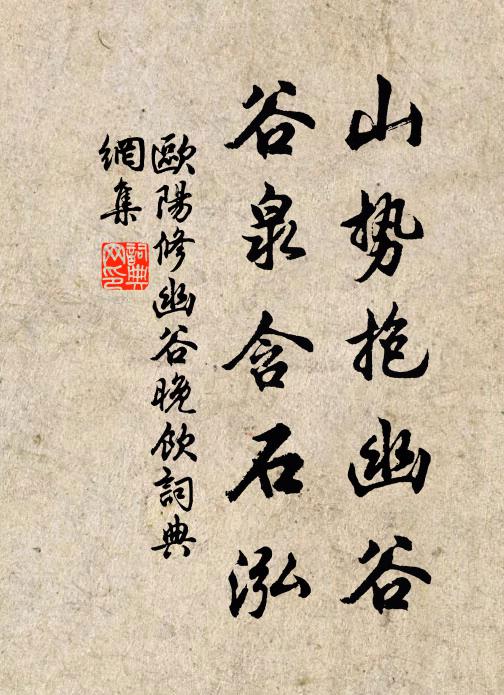 山势抱幽谷
谷泉含石泓
歐陽修幽谷晚飲詞典
網集
詞典
网印